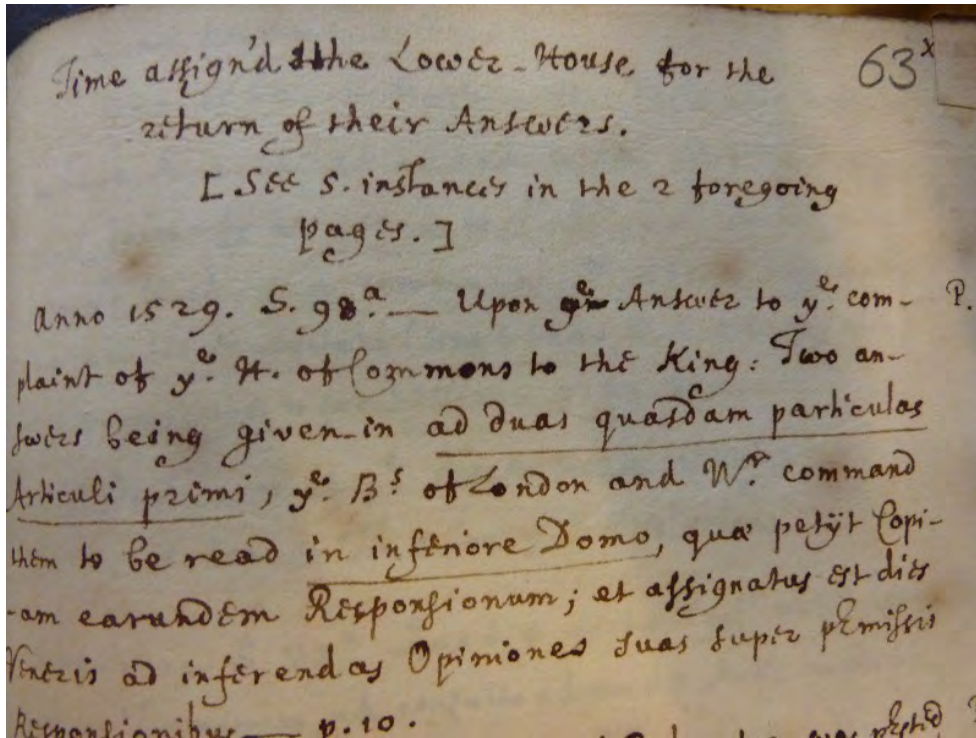 Time assign'd the Lower-House for the 63x
return of their Answers.
[ See 5. instances in the 2 foregoing
pages. ]
Anno 1529. S. 98.a — Upon ye Answer to ye com- P.
plaint of ye H. of Commons to the King: Two an-
swers being given-in ad duas quasdam particulas
Articuli primi, ye Bs of London and Wr command
them to be read in inferiore Domo, quæ petijt Copi-
-am earundem Responsionum; et assignatus est dies
Veneris ad inferendas Opiniones suas super pmissis
Responsionibus — p. 10.